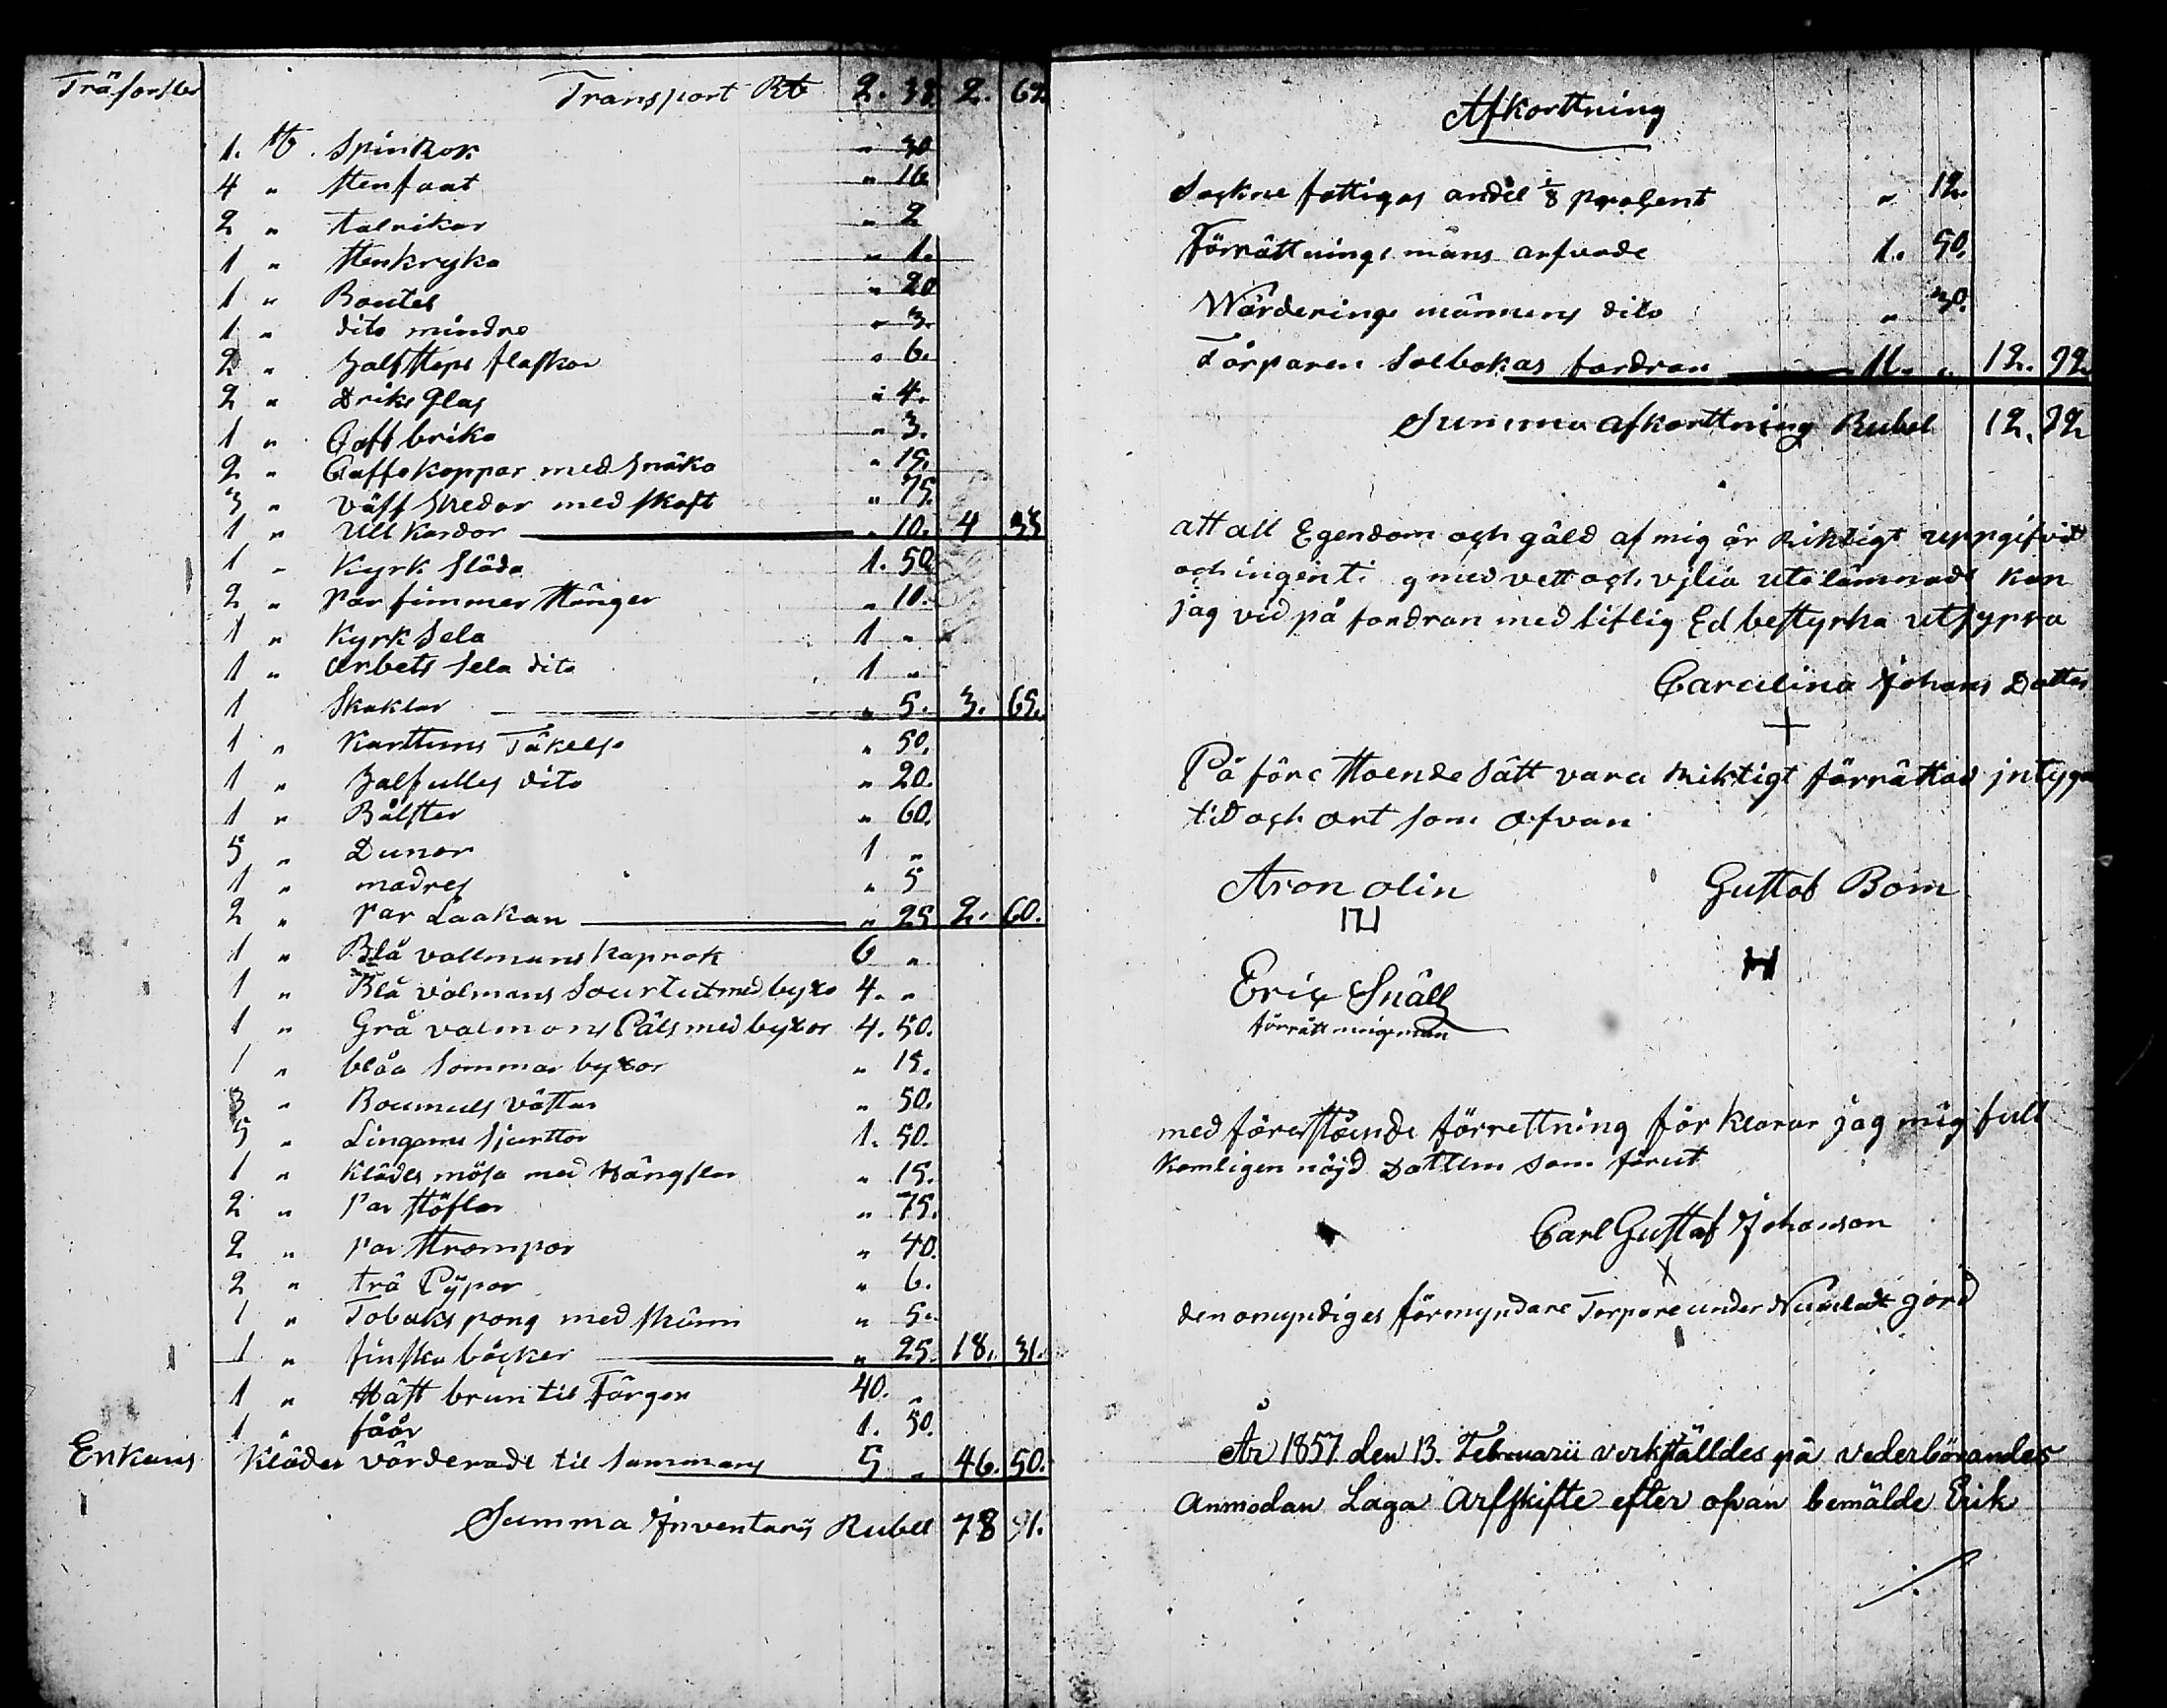 Träsorster Transport Rb 2. 38. 2. 62.
1. st. Spinkok " 30
4 " stenfaat " 16
2 " talrikar " 2
1 " stenkryka " 1.
1 " Boutel " 20
1 " dito mindre " 3.
2 " halfstops flaskor " 6.
2 " Driks glas " 4.
1 " Caff brika " 3.
2 " Caffekoppar med snäka " 15.
3 " väff skedar med skaft " 75.
1 " Ull Kardor " 10. 4 35
1 " Kyrk släda 1. 50
2 " Par fimmerstänger " 10.
1 " Kyrk sela 1 "
1 " arbets sela dito 1 "
1 Skaklar " 5. 3. 65.
1 " Karttuns Täkelse " 50.
1 " halfulles dito " 20.
1 " Bålster " 60.
5 " Dunor 1 "
1 " madres " 5
2 " Par Laakan " 25 2. 60.
1 " Blå vallmans kaprok 6 "
1 " Blå valmans Sourtut med byxo 4. "
1 " Grå valmans Päls med byxor 4. 50.
1 " blåa sommar byxor " 15.
3 " Boumuls västar " 50.
5 " Lingarns sjurttor 1. 50.
1 " Klädes mösa med Hängslen " 15.
2 " Par stöflar " 75.
2 " Par strompor " 40.
2 " trä Pÿpor " 6.
1 " Tobaks pong med skinn " 5.
1 " finska böcker " 25. 18. 31.
1 " Hått brun til Färgen 40. "
1 " fåår 1. 50.
Enkans Kläder värderade til sammans 5 " 46. 50.
Summa Inventarÿ Rubel 78 91.
Afkorttning
Sockne fattigas andel 1/8 procent " 12.
Förrättnings mans arfvode 1. 50.
Wärderings männens dito " 30.
Torparen Solbokas fordran 11. " 12. 92.
Summa afkorttning Rubel 12. 92
att all Egendom och gäld af mig är Riktigt uppgifvit
och ingenti g med vett och vilia utelämnadt kan
jag vid på fordran med liflig Ed bestyrka utsypra
Carolina Johans Dotter
+
På före stoende sätt vara Riktigt förrättad intyga
tid och ort som ofvan
Aron olin Gustaf Bom
Eric Snäll
förrättningsman
med förestående förrettning förklarar jag mig full
komligen nöjd Dattum som förut
Carl Gustaf Johanson
X
den omyndiges förmyndare Torpare under gård
År 1857 den 13. Februarii verkställdes på vederbörandes
Anmodan Laga Arfskifte efter ofvan bemälde Erik